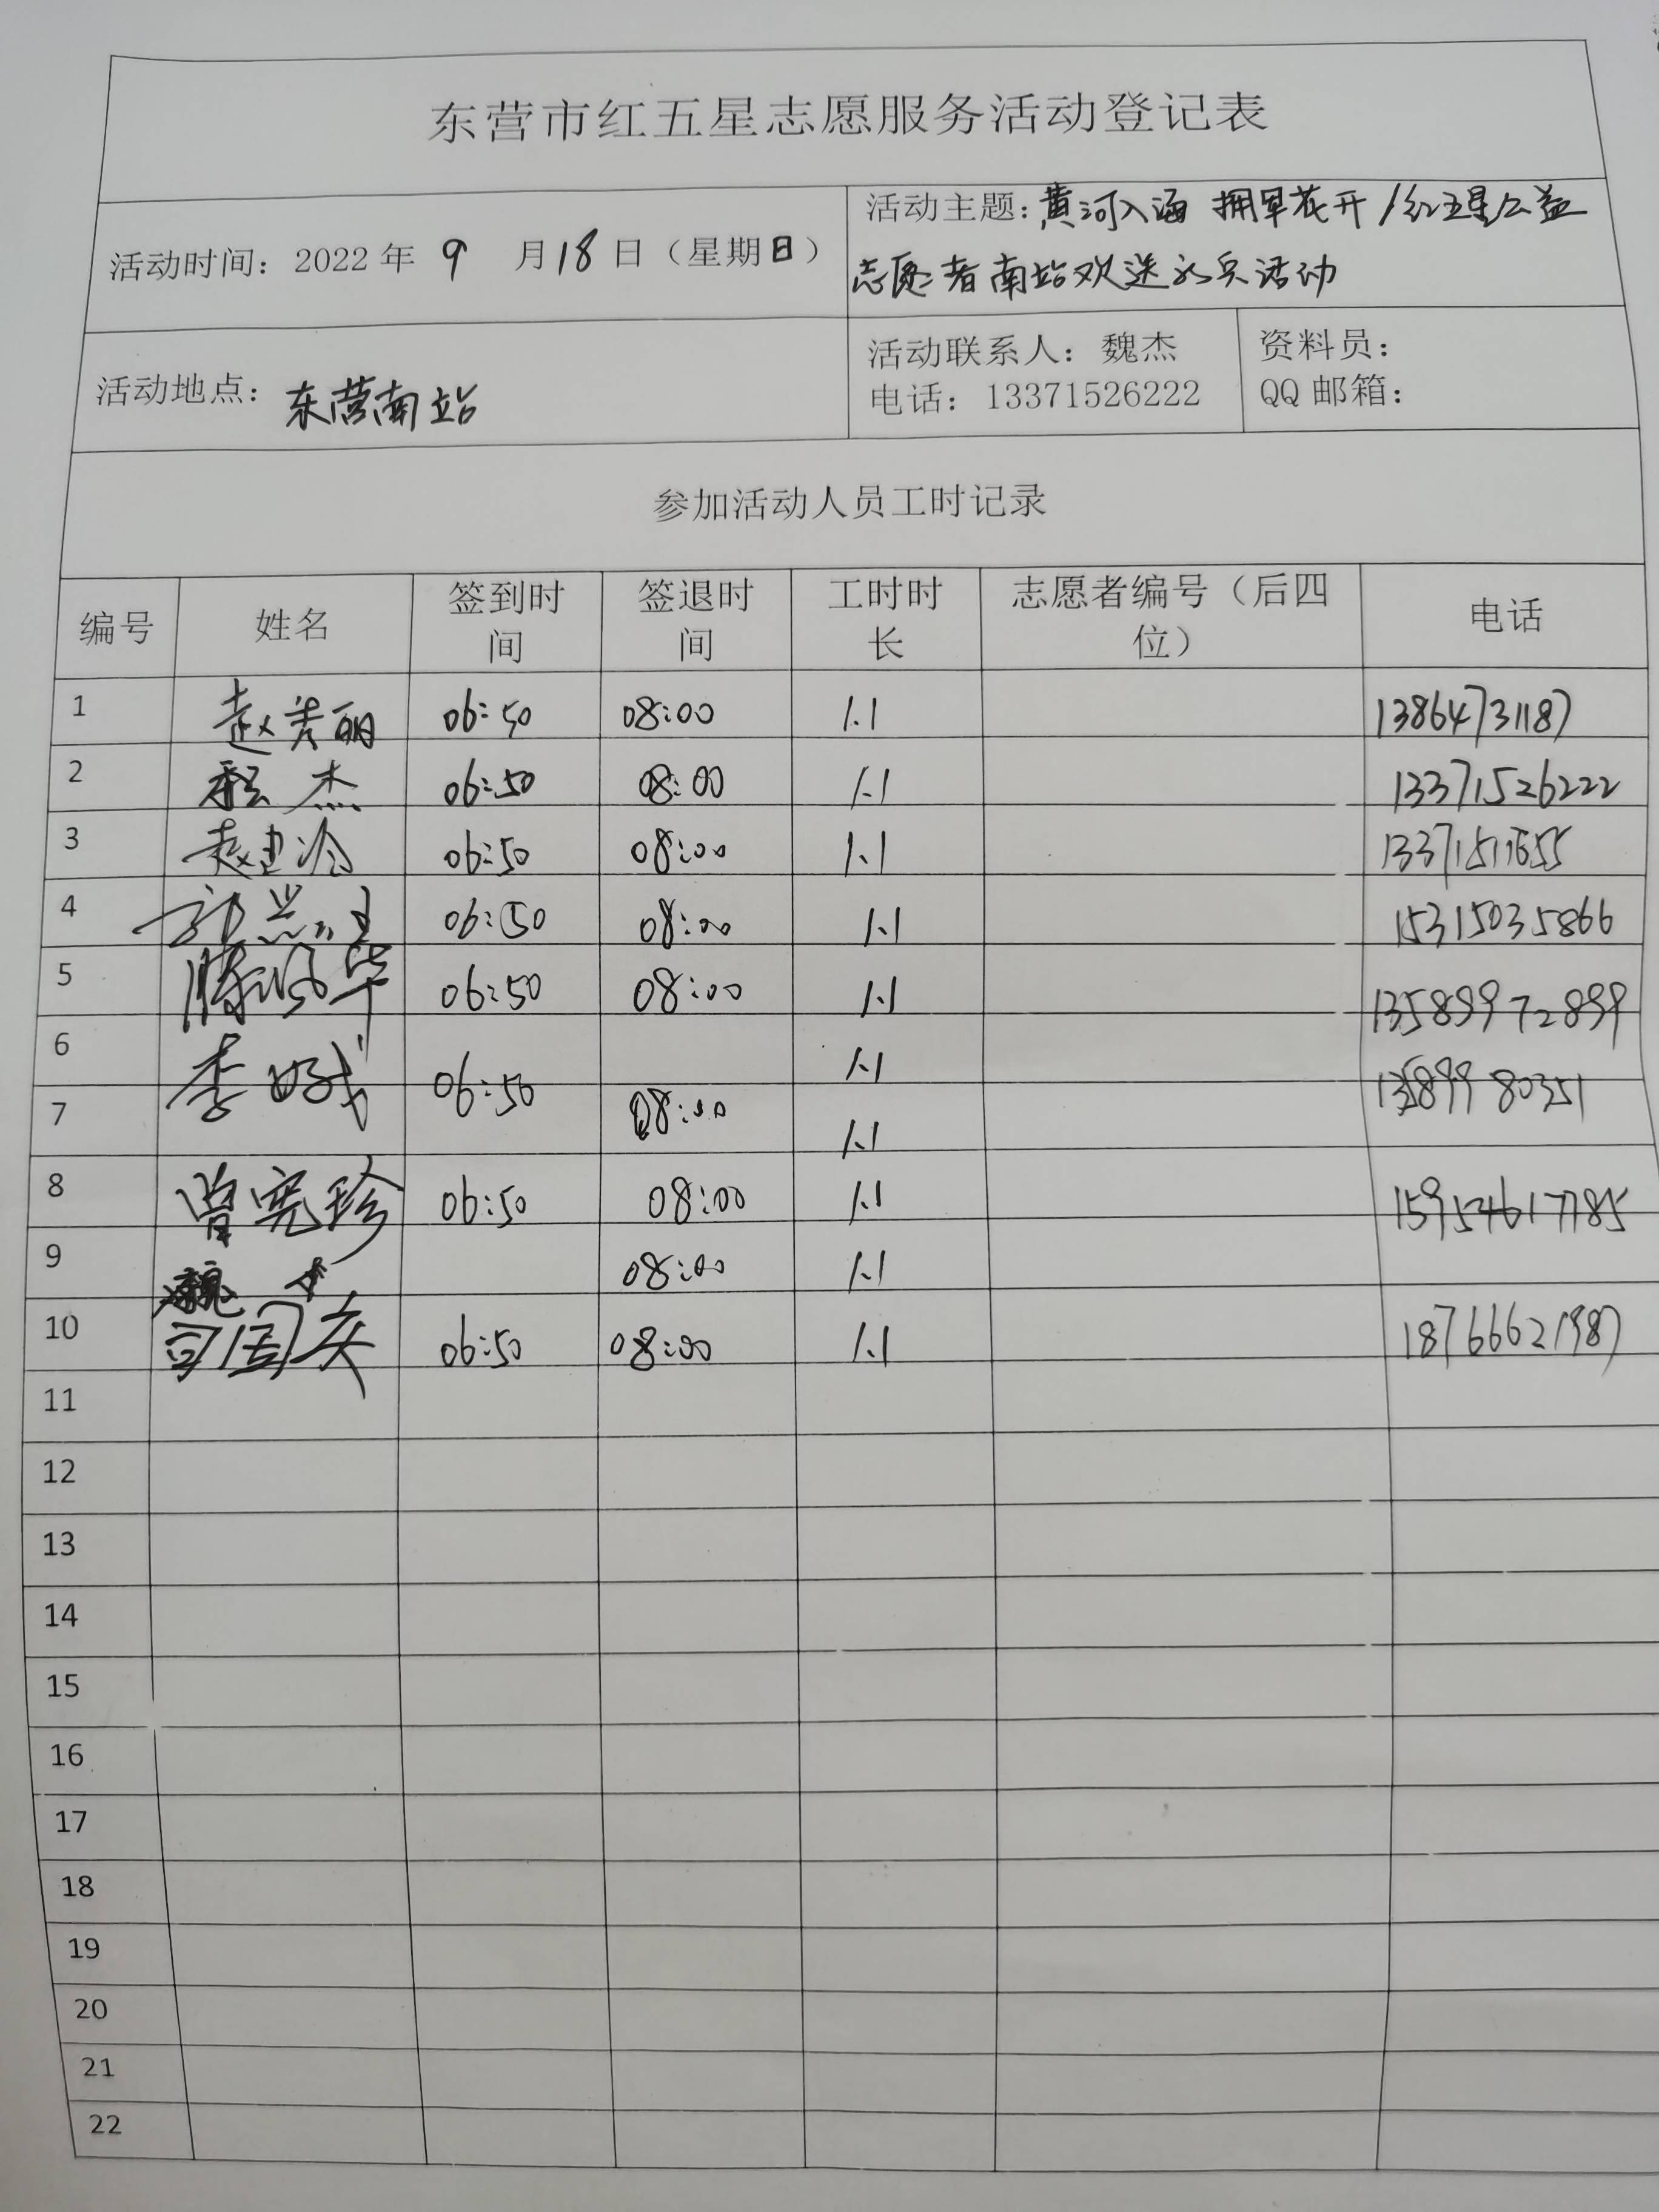 东营市红五星志愿服务活动登记表
活动时间：2022年 9 月18日（星期日）
活动主题：黄河入海 拥军花开/红五星公益
志愿者南站欢送新兵活动
活动地点：东营南站
活动联系人：魏杰
电话：13371526222
资料员：
QQ邮箱：
参加活动人员工时记录
编号 姓名 签到时间 签退时间 工时时长 志愿者编号（后四位） 电话
1 赵美丽 06:50 08:00 1.1 13864731187
2 程杰 06:50 08:00 1.1 13371526222
3 06:50 08:00 1.1 13371511655
4 06:50 08:00 1.1 15315035866
5 06:50 08:00 1.1 13589972899
6 李 06:50 08:00 1.1 13589980351
7 1.1
8 曾宪珍 06:50 08:00 1.1 15954617785
9 魏 08:00 1.1
10 司国庆 06:50 08:00 1.1 18766621987
11
12
13
14
15
16
17
18
19
20
21
22